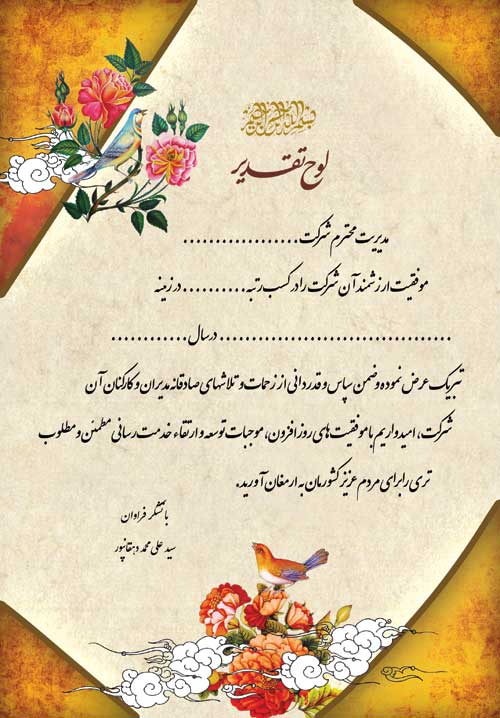 بسم الله الرحمن الرحیم
لوح تقدیر
مدیریت محترم شرکت..................
موفقیت ارزشمند آن شرکت را در کسب رتبه.......... در زمینه
.................................... در سال ............
تبریک عرض نموده و ضمن سپاس و قدردانی از زحمات و تلاشهای صادقانه مدیران و کارکنان آن
شرکت، امیدواریم با موفقیت های روز افزون، موجبات توسعه و ارتقاء خدمت رسانی مطمئن و مطلوب
تری را برای مردم عزیز کشورمان به ارمغان آورید.
با تشکر فراوان
سید علی محمد دهقانپور